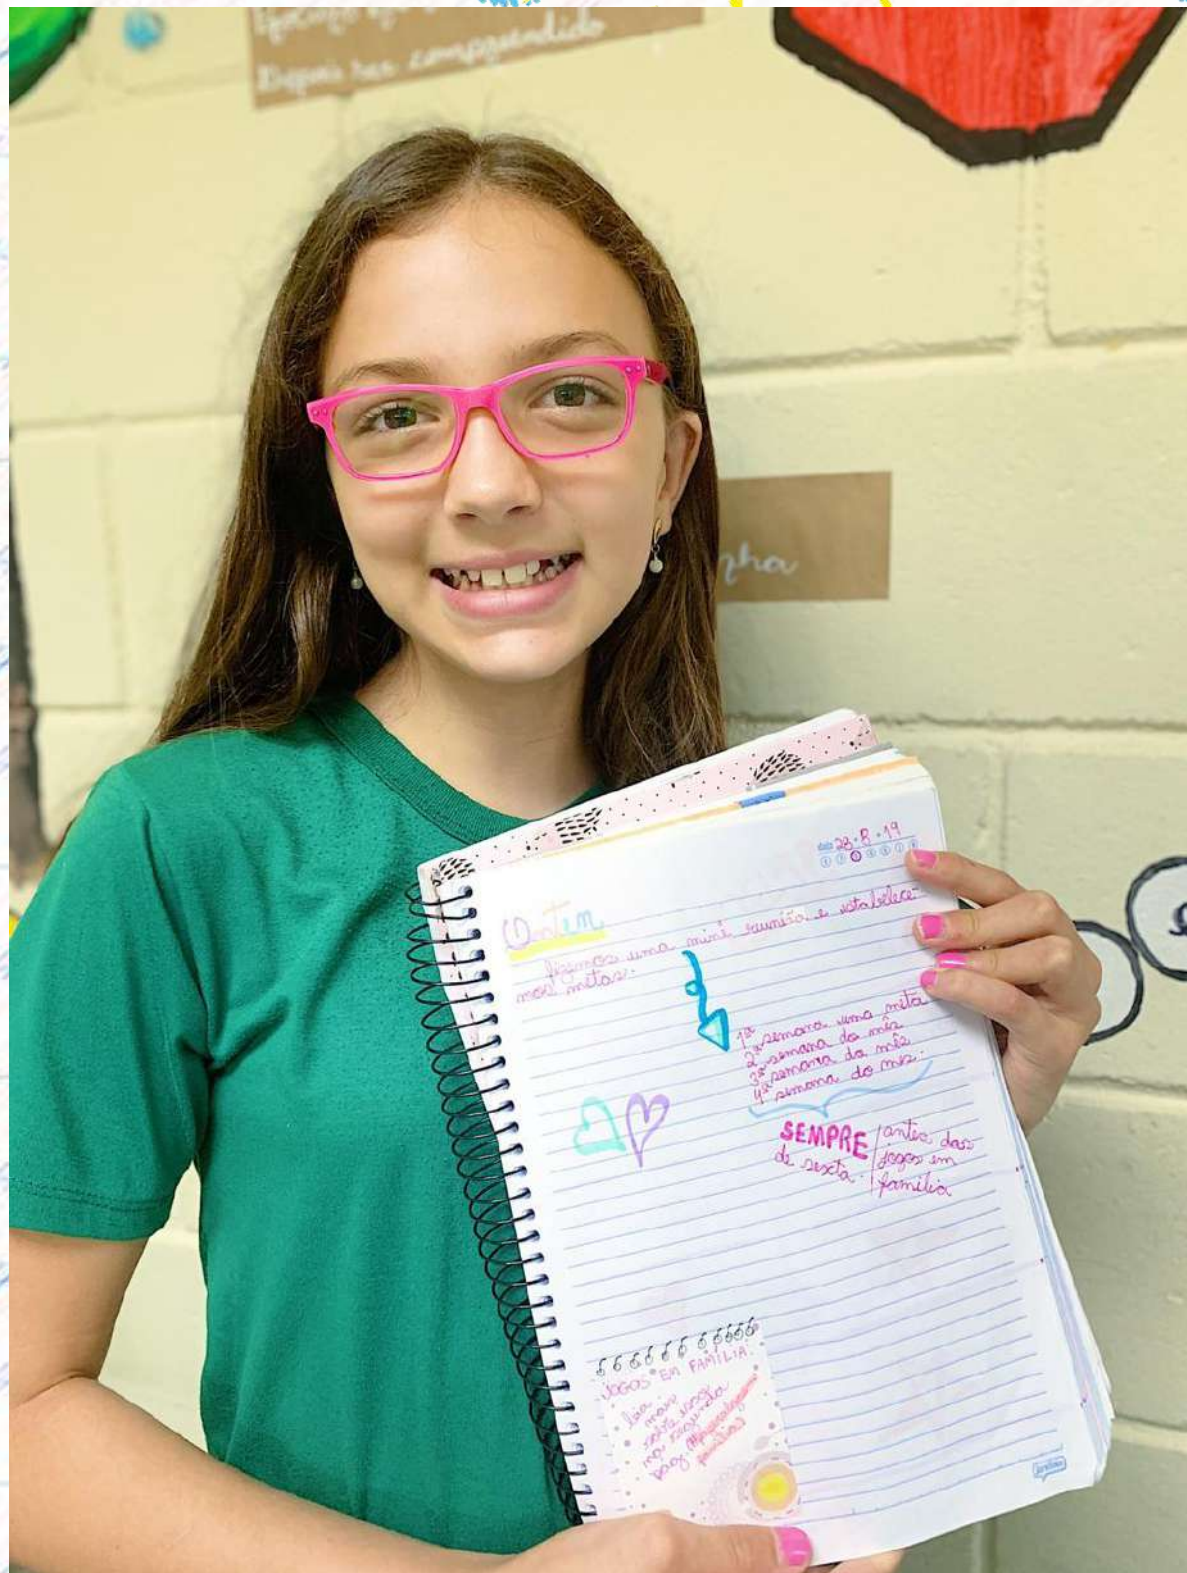 Depois ser compreendido
nha
data 28.8.19
Ontem
fizemos uma mini reunião e estabelece-
mos metas.
1ª semana uma meta
2ª semana do mês
3ª semana do mês
4ª semana do mês.
SEMPRE
de sexta.
antes dos
jogos em
família
JOGOS EM FAMÍLIA:
leia
mais
sobre isso
na segunda
pág.